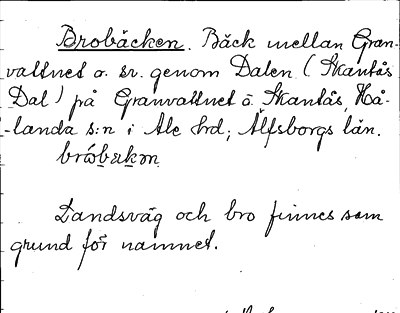 Brobäcken. Bäck mellan Gran-
vattnet o. sr. genom Dalen (Skantås
Dal) på Granvattnet o. Skantås, Hå-
-landa s:n i Ale hrd; Älfsborgs län.
bróbækən

Landsväg och bro finnes som
grund för namnet.